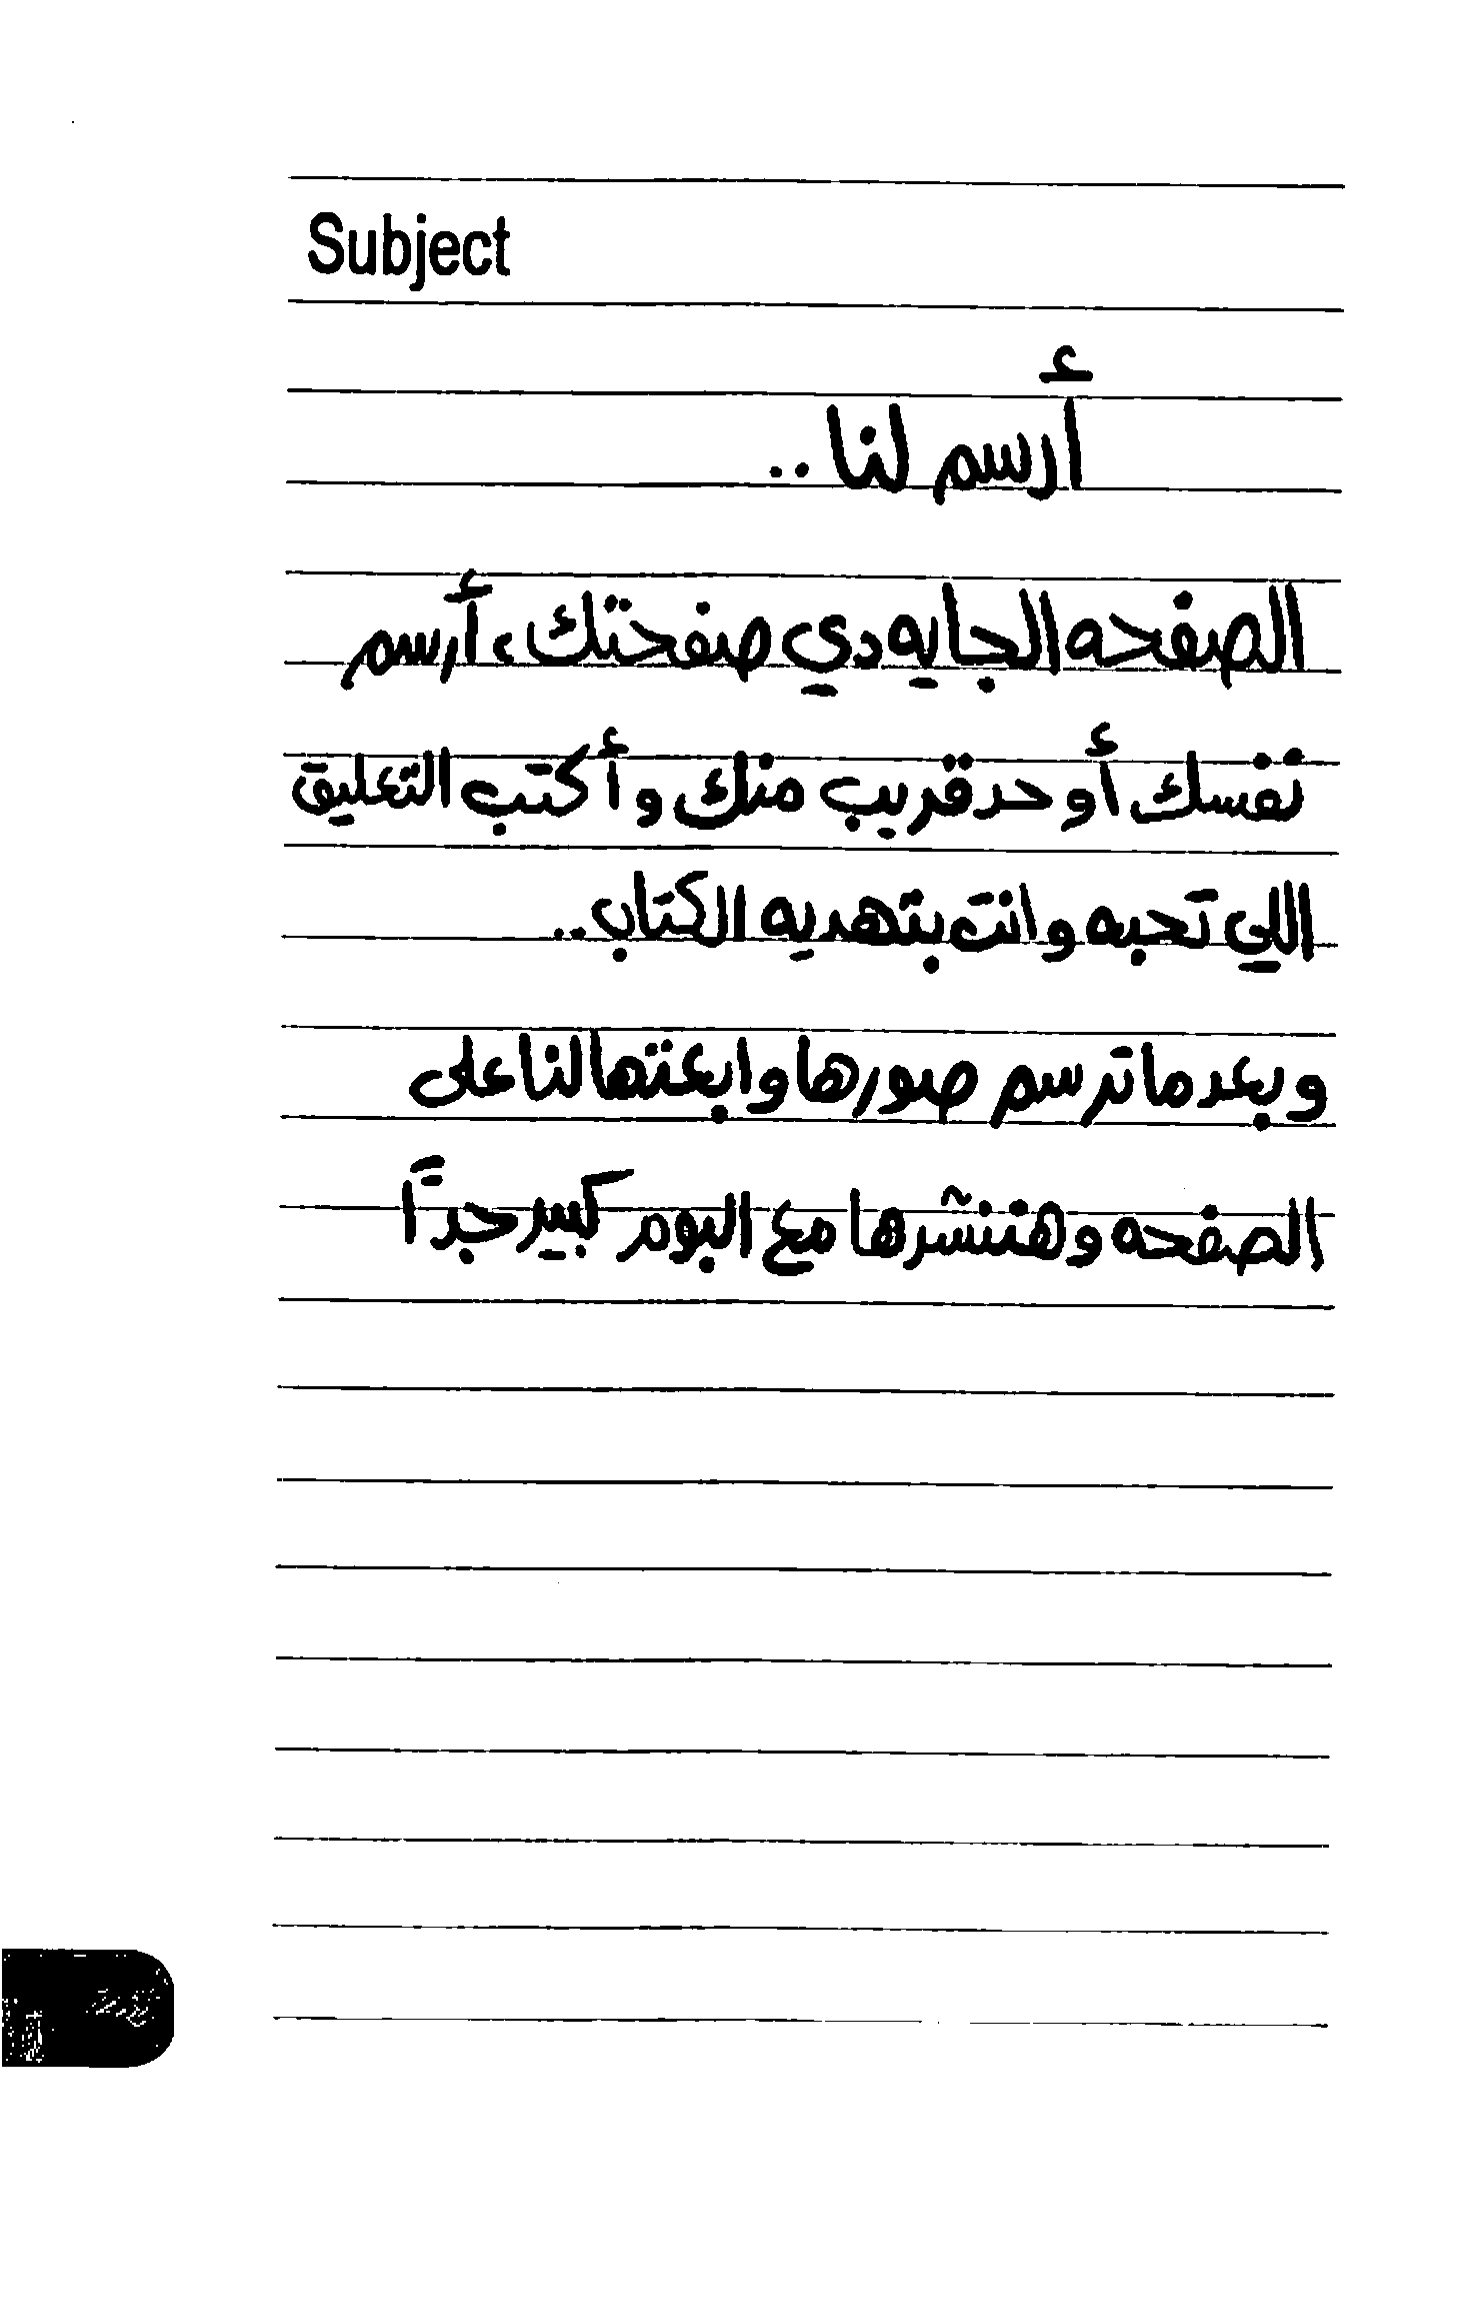 Subject
أرسم لنا ..
الصفحه الجايه دي صفحتك، أرسم
نفسك أو حد قريب منك و أكتب التعليق
اللي تحبه وانت بتهديه الكتاب..
وبعد ما ترسم صورها وابعتها لنا على
الصفحه وهننشرها مع البوم كبير جداً